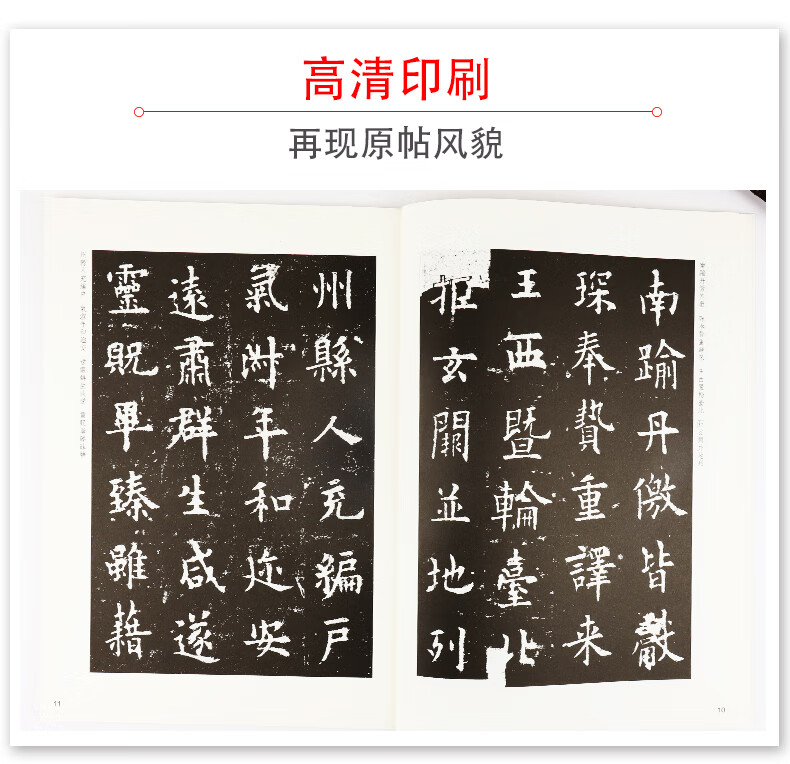 高清印刷
再现原帖风貌
南踰丹儌皆獻
琛奉贄重譯来
王西暨輪臺北
拒玄闕並地列
州縣人充編戸
氣淑年和迩安
遠肅群生咸遂
靈貺畢臻雖藉
11
10